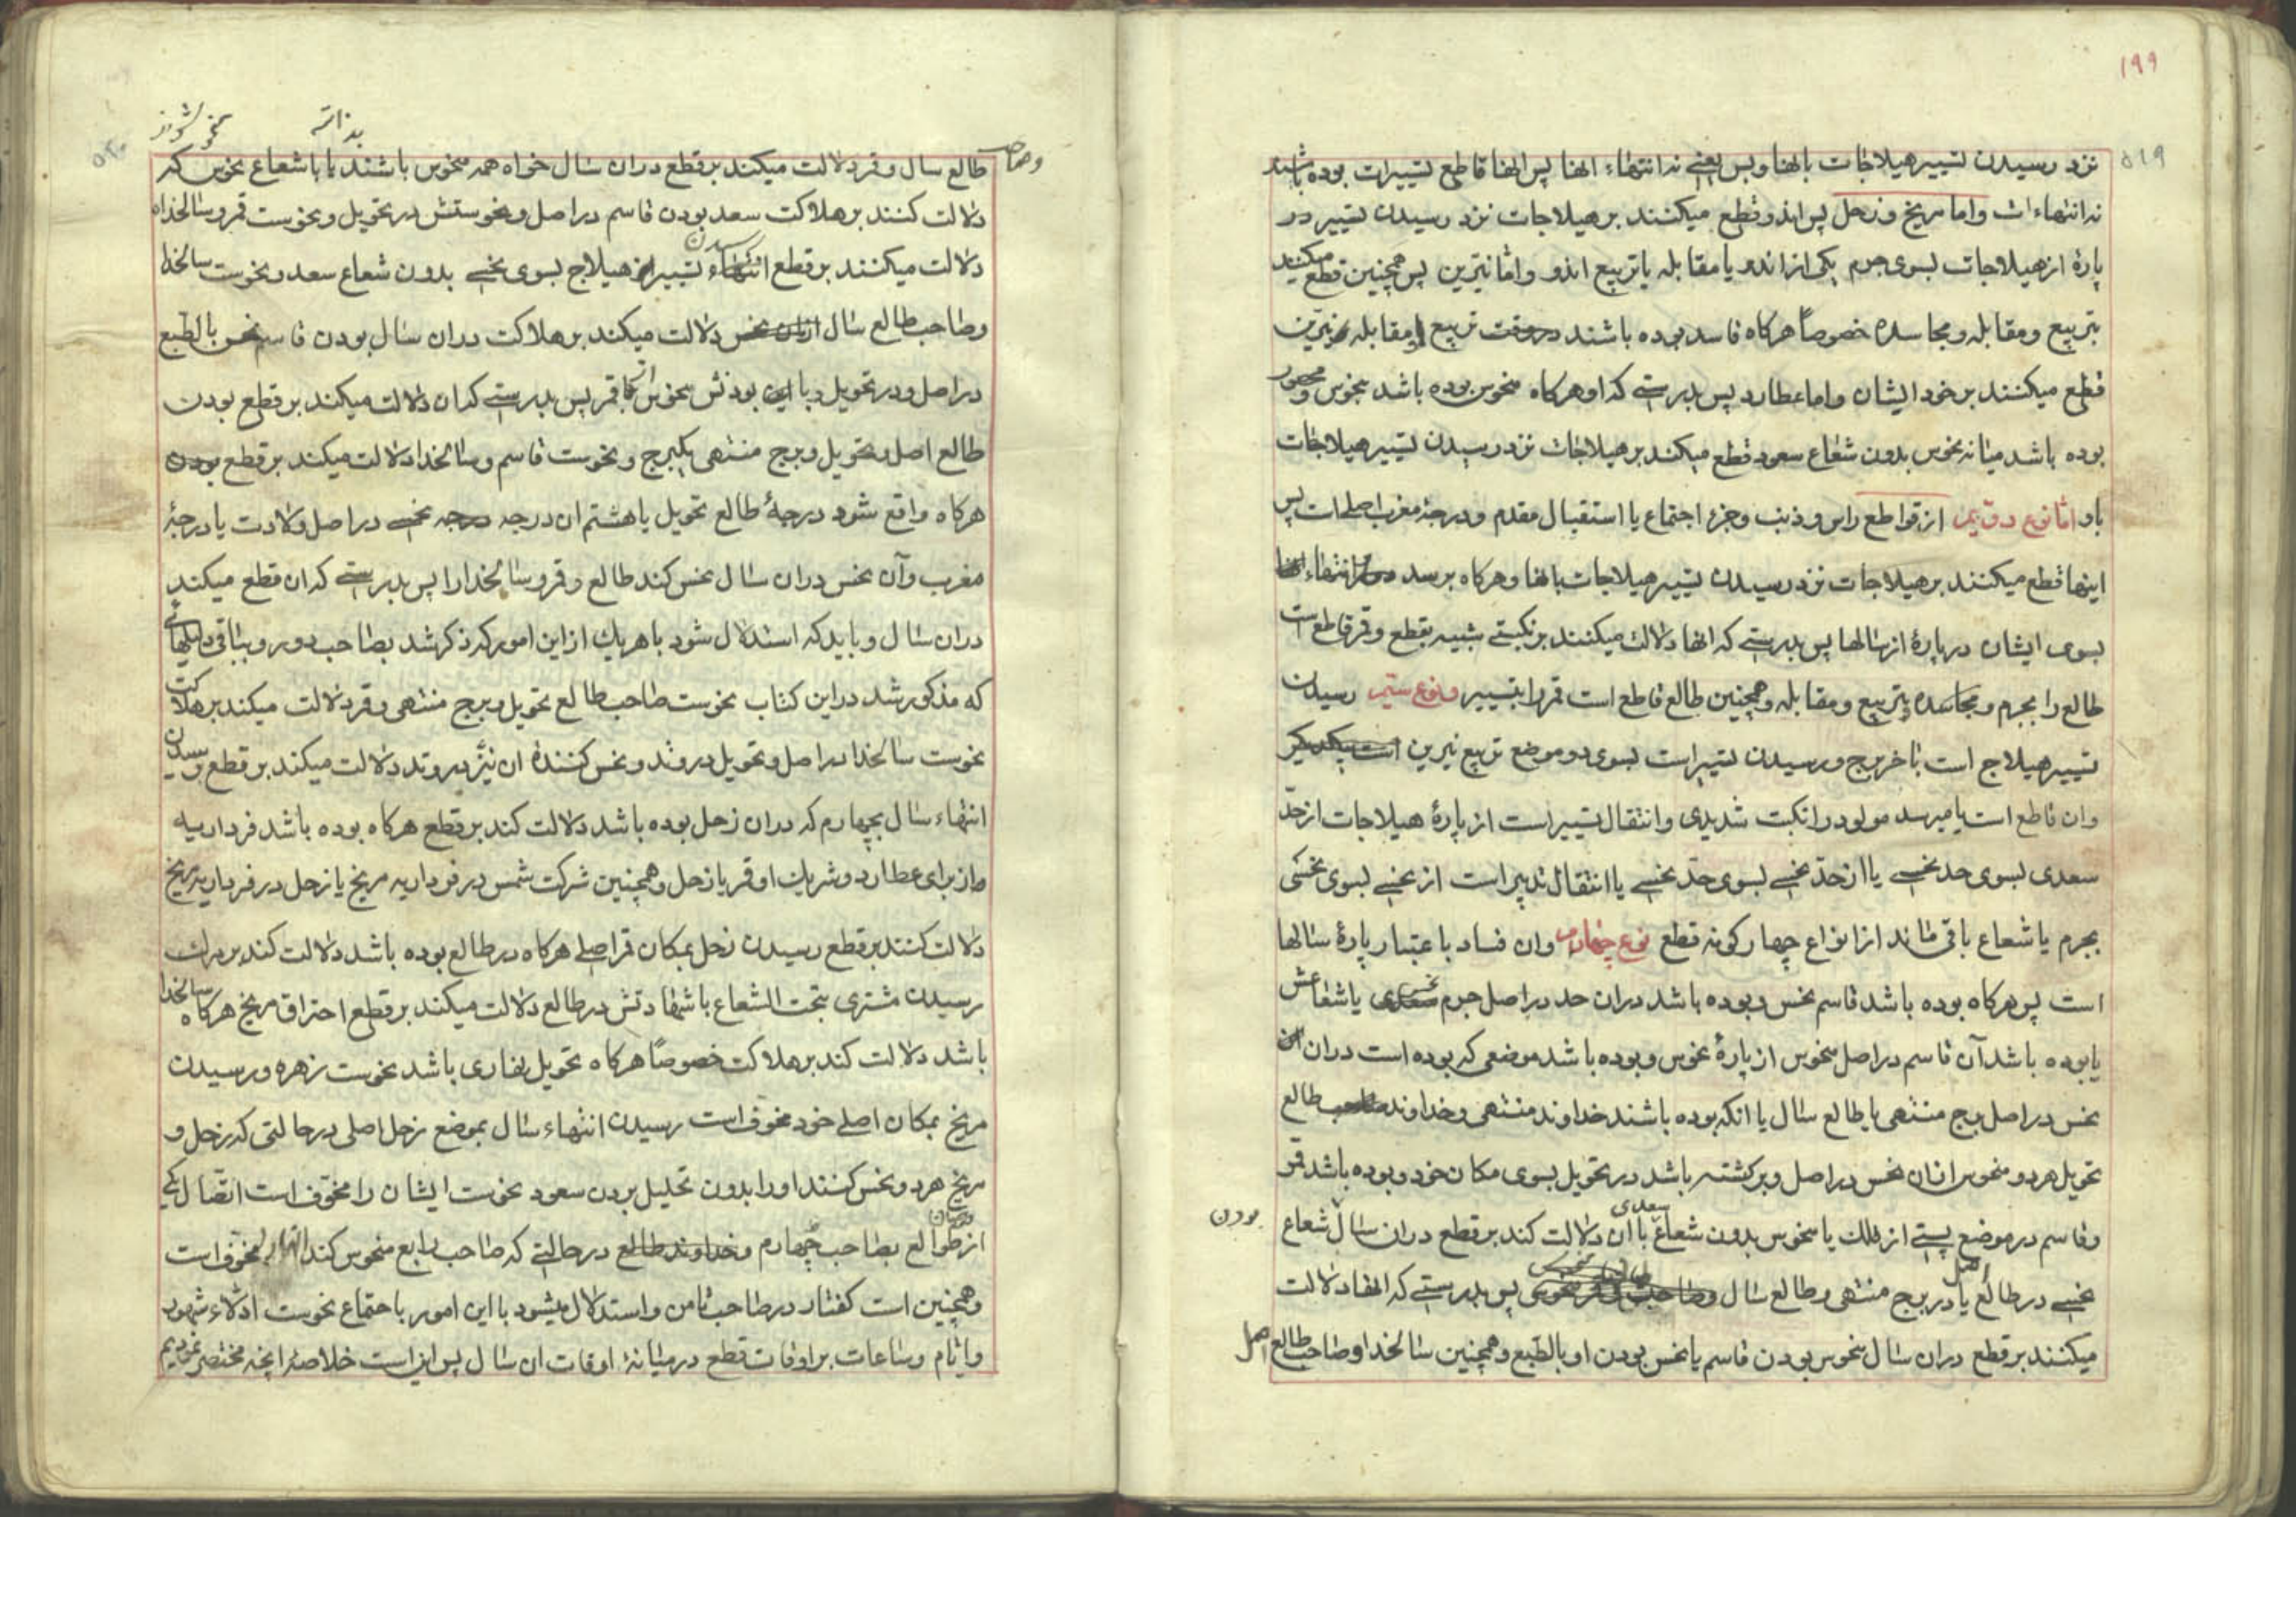 ۱۹۹
۵۱۹
نزد رسیدن تسییر هیلاجات بانها و بس یعنی نه انتهاء انها پس انها قاطع تسییرات بوده باشند
نه انتهاءات واما مریخ و زحل پس اندو قطع میکنند بر هیلاجات نزد رسیدن تسییر در
پارهٔ از هیلاجات بسوی جرم یکی از اندو یا مقابله یا تربیع اندو واما نیرین پس همچنین قطع میکنند
بتربیع و مقابله و مجاسده خصوصاً هرکاه فاسد بوده باشند تربیع و مقابله نیرین
قطع میکنند بر خود ایشان واما عطارد پس بدرستی که او هرکاه منحوس بوده باشد بنحوس و محصور
بوده باشد میانه نحوس بدون شعاع سعود قطع میکند بر هیلاجات نزد رسیدن تسییر هیلاجات
باو اما نوع دویم از قواطع راس و ذنب و جزء اجتماع یا استقبال مقدم و درجهٔ مغرب اصل است پس
اینها قطع میکنند بر هیلاجات نزد رسیدن تسییر هیلاجات بانها و هرکاه برسد انتهاء
بسوی ایشان در پارهٔ از سالها پس بدرستی که انها دلالت میکنند بر نکبتی شبیه بقطع و قمر قاطع است
طالع را بجرم و مجاسده و تربیع و مقابله و همچنین طالع قاطع است قمر را بتسییر و نوع ستیم رسیدن
تسییر هیلاج است باخر برج و رسیدن تسییر است بسوی دو موضع تربیع نیرین
وان قاطع است یا میرسد مولود را نکبت شدیدی و انتقال تسییر است از پارهٔ هیلاجات از حدّ
سعدی بسوی حد نحسی یا از حدّ نحسی بسوی حدّ نحسی یا انتقال تدبیر است از نحسی بسوی نحسی
بجرم یا شعاع باقی ماند از انواع چهار کونه قطع نوع چهارم وان فساد باعتبار پارهٔ سالها
است پس هرکاه بوده باشد قاسم نحس و بوده باشد دران حد در اصل جرم نحسی یا شعاعش
یا بوده باشد آن قاسم در اصل منحوس از پارهٔ نحوس و بوده باشد موضعی که بوده است دران
نحس در اصل برج منتهی یا طالع سال یا انکه بوده باشند خداوند منتهی و خداوند طالع
تحویل هر دو منحوس ازان نحس در اصل و برکشته باشد در تحویل بسوی مکان خود و بوده باشد قمر
وقاسم در موضع پستی از فلک یا منحوس بدون شعاع سعدی باان دلالت کند بر قطع دران سال شعاع
بودن
نحسی در طالع اصل یا در برج منتهی و طالع سال پس بدرستی که انها دلالت
میکنند بر قطع دران سال منحوس بودن قاسم یا نحس بودن او بالطبع و همچنین سالخدا و صاحب طالع اصل
طالع سال و قمر دلالت میکند بر قطع دران سال خواه همه منحوس باشند یا باشعاع نحوس که
دلالت کنند بر هلاکت سعد بودن قاسم در اصل و نحوستش در تحویل و نحوست قمر و سالخداه
دلالت میکنند بر قطع رسیدن تسییر هیلاج بسوی نحسی بدون شعاع سعد و نحوست سالخدا
وصاحب طالع سال دلالت میکند بر هلاکت دران سال بودن قاسم نحس بالطبع
در اصل و در تحویل و با بودنش منحوس قمر پس بدرستی که ان دلالت میکند بر قطع بودن
طالع اصل و تحویل و برج منتهی یکبرج و نحوست قاسم و سالخدا دلالت میکند بر قطع
هرکاه واقع شود درجهٔ طالع تحویل یا هشتم ان درجه نحسی در اصل ولادت یا درجهٔ
مغرب وآن نحس دران سال نحس کند طالع و قمر و سالخدا را پس بدرستی که ان قطع میکند
دران سال و باید که استدلال شود باهریک از این امور که ذکر شد بصاحب دور و بباقی دلیلهائی
که مذکور شد در این کتاب نحوست صاحب طالع تحویل و برج منتهی و قمر دلالت میکند بر هلاکت
نحوست سالخدا در اصل و تحویل در وتد و نحس کنندهٔ ان نیز در وتد دلالت میکند بر قطع رسیدن
انتهاء سال بچهارم که دران زحل بوده باشد دلالت کند بر قطع هرکاه بوده باشد فرداریه
وازبرای عطارد و شریک او قمر یا زحل و همچنین شرکت شمس در فرداریه مریخ یا زحل در فرداریه مریخ
دلالت کنند بر قطع رسیدن زحل بمکان قمر اصلی هرکاه در طالع بوده باشد دلالت کند بر مرک
رسیدن مشتری بتحت الشعاع باشهادتش در طالع دلالت میکند بر قطع احتراق مریخ هرکاه سالخدا
باشد دلالت کند بر هلاکت خصوصاً هرکاه تحویل نهاری باشد نحوست زهره و رسیدن
مریخ بمکان اصلی خود مخوف است رسیدن انتهاء سال بموضع زحل اصلی در حالتی که زحل و
مریخ هر دو نحس کنند او را بدون تحلیل بردن سعود نحوست ایشان را مخوف است اتصال یکی
از طوالع بصاحب چهارم در حالتی که صاحب رابع منحوس کند مخوف است
وهمچنین است کفتار در صاحب ثامن و استدلال میشود بااین امور باجتماع نحوست ادلاء شهور
وایام و ساعات بر اوقات قطع در میانهٔ اوقات ان سال پس این است خلاصهٔ انچه مختصر نمودیم